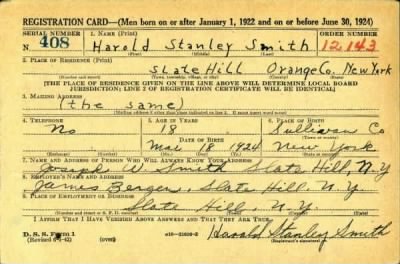 REGISTRATION CARD—(Men born on or after January 1, 1922 and on or before June 30, 1924)
SERIAL NUMBER 1. NAME (Print) ORDER NUMBER
408 Harold Stanley Smith 12,143
(First) (Middle) (Last)
2. PLACE OF RESIDENCE (Print)
Slate Hill Orange Co. New York
(Number and street) (Town, township, village, or city) (County) (State)
[THE PLACE OF RESIDENCE GIVEN ON THE LINE ABOVE WILL DETERMINE LOCAL BOARD
JURISDICTION; LINE 2 OF REGISTRATION CERTIFICATE WILL BE IDENTICAL]
3. MAILING ADDRESS
(the same)
[Mailing address if other than place indicated on line 2. If same insert word same]
4. TELEPHONE 5. AGE IN YEARS 6. PLACE OF BIRTH
No 18 Sullivan Co
DATE OF BIRTH (Town or county)
Mar 18 1924 New York
(Exchange) (Number) (Mo.) (Day) (Yr.) (State or country)
7. NAME AND ADDRESS OF PERSON WHO WILL ALWAYS KNOW YOUR ADDRESS
Joseph W. Smith Slate Hill, N.Y
8. EMPLOYER'S NAME AND ADDRESS
James Berger, Slate Hill, N.Y.
9. PLACE OF EMPLOYMENT OR BUSINESS
Slate Hill, N.Y.
(Number and street or R. F. D. number) (Town) (County) (State)
I AFFIRM THAT I HAVE VERIFIED ABOVE ANSWERS AND THAT THEY ARE TRUE.
D. S. S. Form 1
(Revised 6-9-42) (over) Harold Stanley Smith
(Registrant's signature)